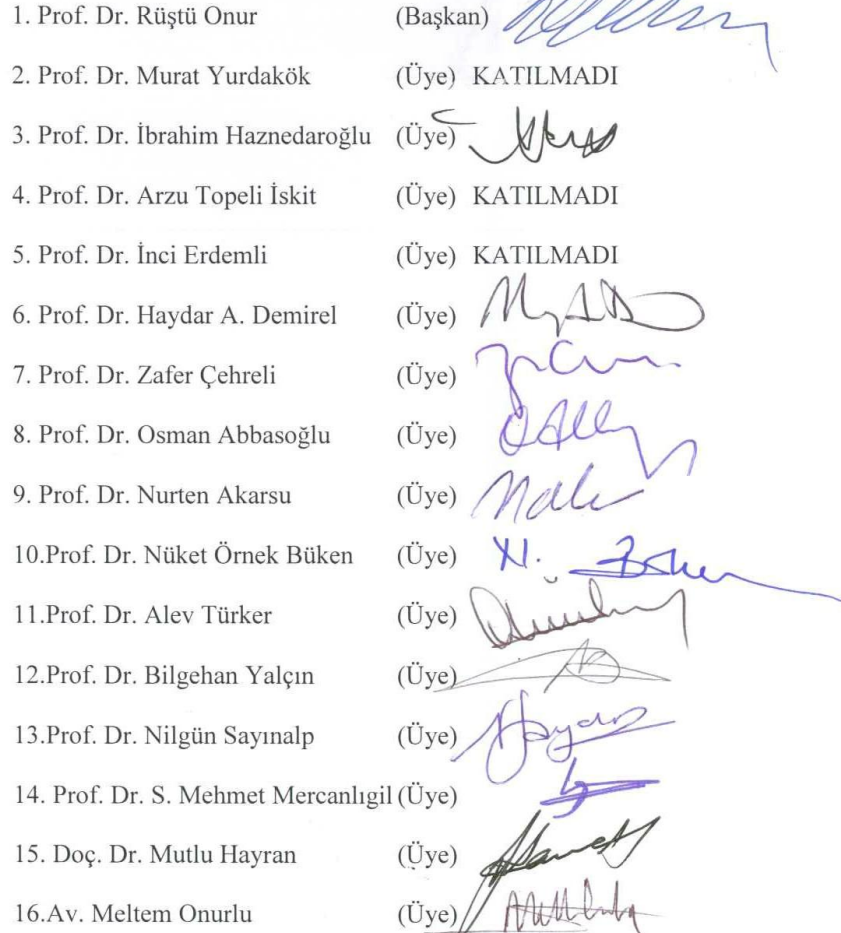 1. Prof. Dr. Rüştü Onur (Başkan)
2. Prof. Dr. Murat Yurdakök (Üye) KATILMADI
3. Prof. Dr. İbrahim Haznedaroğlu (Üye)
4. Prof. Dr. Arzu Topeli İskit (Üye) KATILMADI
5. Prof. Dr. İnci Erdemli (Üye) KATILMADI
6. Prof. Dr. Haydar A. Demirel (Üye)
7. Prof. Dr. Zafer Çehreli (Üye)
8. Prof. Dr. Osman Abbasoğlu (Üye)
9. Prof. Dr. Nurten Akarsu (Üye)
10.Prof. Dr. Nüket Örnek Büken (Üye)
11.Prof. Dr. Alev Türker (Üye)
12.Prof. Dr. Bilgehan Yalçın (Üye)
13.Prof. Dr. Nilgün Sayınalp (Üye)
14. Prof. Dr. S. Mehmet Mercanlıgil (Üye)
15. Doç. Dr. Mutlu Hayran (Üye)
16.Av. Meltem Onurlu (Üye)